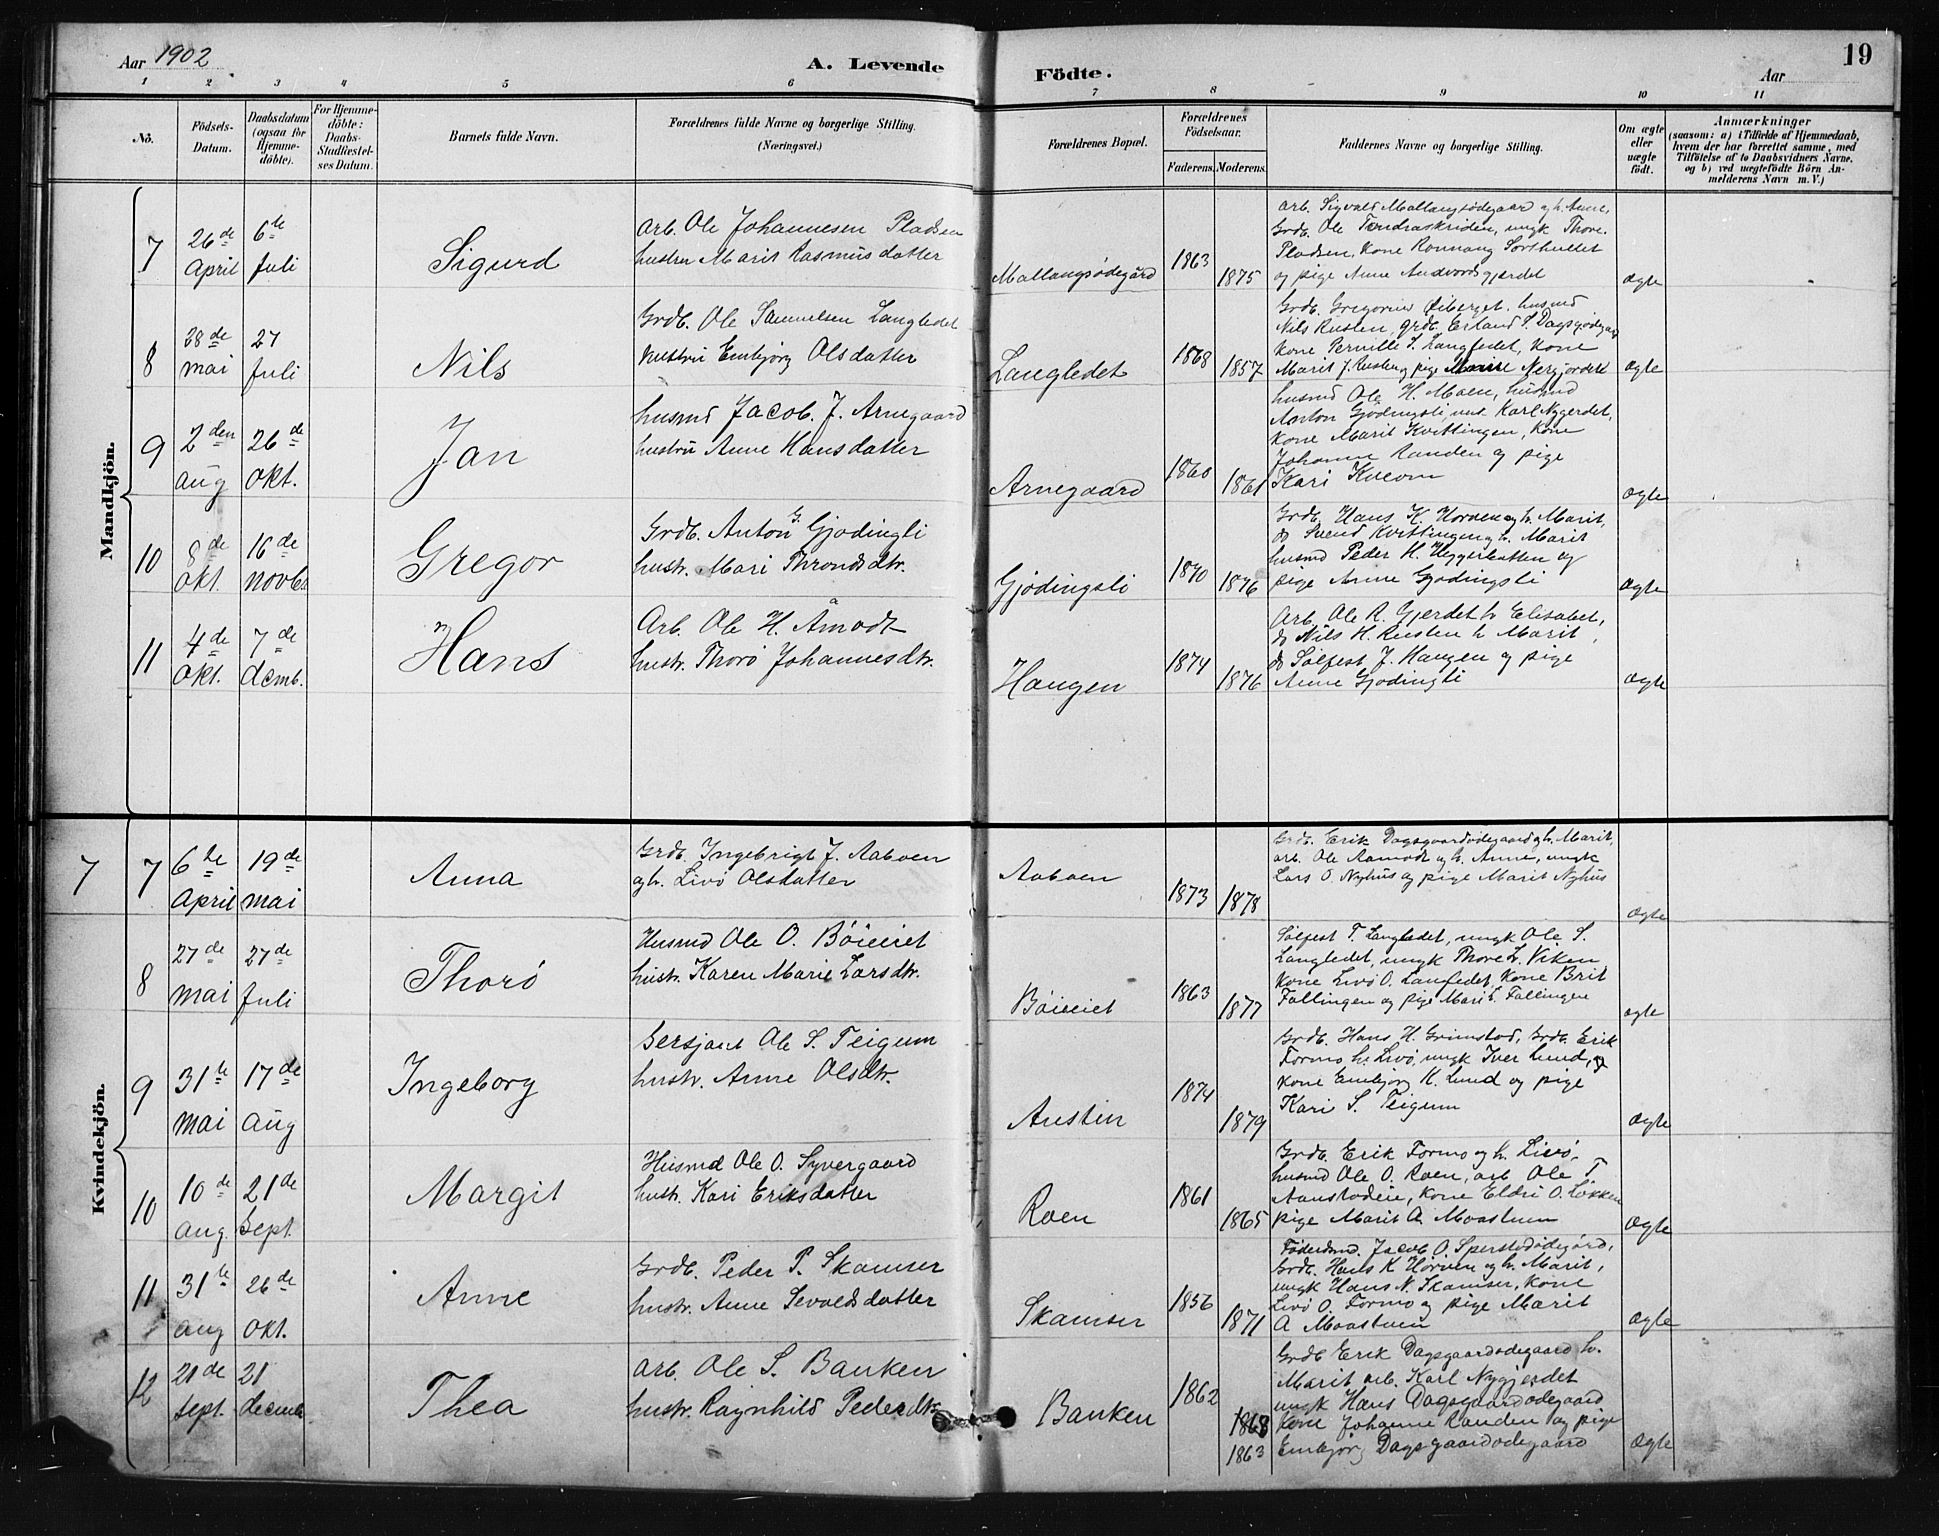 Aar 1902
A. Levende
Födte.
Aar
19
1 2 3 4 5 6 7 8 9 10 11
No.
Födsels-
Datum.
Daabsdatum
(ogsaa for
Hjemme-
döbte).
For Hjemme-
döbte:
Daabs-
Stadfæstel-
ses Datum.
Barnets fulde Navn.
Forældrenes fulde Navne og borgerlige Stilling.
(Næringsvei.)
Forældrenes Bopæl.
Forældrenes
Födselsaar.
Faderens. Moderens.
Faddernes Navne og borgerlige Stilling.
Om ægte
eller
uægte
födt.
Anmærkninger
(saasom: a) i Tilfælde af Hjemmedaab,
hvem der har forrettet samme, med
Tilföielse af to Daabsvidners Navne,
og b) ved uægtefödte Börn An-
melderens Navn m. V.)
Mandkjön.
7
26de
April
6te
Juli
Sigurd
Arb. Ole Johannesen Pladsen
hustru Marit Rasmusdatter
Mallangsødegård
1863
1875
arb. Sigvald Mallangsødegaar og h. Anne,
Grdb. Ole Tondraskriden, ungk Thore
Pladsen, kone Ronnaug Sorthullet
og pige Anne Andvordsgjerdet
ægte
8
28de
mai
27
Juli
Nils
Grdb. Ole Samuelsen Langledet
hustru Embjørg Olsdatter
Langledet
1868
1857
Grdb. Gregorius Øiberget, husmd
Nils Rusten, grdb. Erland S. Dagsgødegar
kone Pernille S. Langledet, kone
Marit J. Rusten og pige Nergjordet
ægte
9
2den
aug
26de
okt.
Jan
husmd Jacob. J. Arnegaard
hustru Anne Hansdatter
Arnegaard
1860
1861
husmd Ole H. Moen, husmd
Anton Gjødingsli, Karl Nygerdet,
kone Marit Kvittingen, kone
Johanne Randen og pige
Kari Kvcom
ægte
10
8de
okt.
16de
novbr
Gregor
Grdb. Anton G. Gjødingli
hustr. Mari Throndsdtr.
Gjødingsli
1870
1876
Grdb. Hans K. Horven og h. Marit,
do Svend Kvittingen og h. Marit
husmd Peder H. Heggerbatten og
pige Anne Gjødingsli
ægte
11
4de
okt.
7de
decmb.
Hans
Arb. Ole H. Åmodt
hustr. Thorø Johannesdtr.
Haugen
1874
1876
Arb. Ole R. Gjerdet h Elisabet,
do Nils H. Rusten h Marit,
do Sølfest J. Haugen og pige
Anne Gjødingli
ægte
Kvindekjön.
7
7
6te
April
19de
mai
Anna
Grdb. Ingebrigt J. Aaboen
og h. Livø Olsdatter
Aaboen
1873
1878
Grdb. Erik Dagsgaardsødegaard og h. Marit,
arb. Ole Aamodt og h. Anne, ungk
Lars O. Nyhus og pige Marit Nyhus
ægte
8
27de
mai
27de
Juli
Thorø
Husmd Ole O. Bøieiet
hustr. Karen Marie Larsdtr.
Bøieiet
1863
1877
Sølfest T. Langledet, ungk Ole S.
Langledet, ungk Thore L. Viken
kone Livø O. Langledet, kone Brit
Fallingen og pige Marit L. Fallingen
ægte
9
31te
mai
17de
aug
Ingeborg
Sersjant Ole S. Teigum
hustr. Anne Olsdtr.
Austin
1874
1879
Grdb. Hans H. Grimstad, Grdb. Erik
Formo h. Livø, ungk Iver Lund, og
kone Embjørg K. Lund og pige
Kari S. Teigum
ægte
10
10de
aug.
21de
Sept.
Margit
Husmd Ole O. Syvergaard
hustr. Kari Eriksdatter
Roen
1861
1865
Grdb. Erik Formo og h. Livø,
husmd Ole O. Roen, arb. Ole T.
Aanstadeie, kone Eldri O. Løkken
pige Marit A. Moastuen
ægte
11
31te
aug
26de
okt.
Anne
Grdb. Peder P. Skamser
hustr. Anne Sevaldsdatter
Skamser
1856
1871
Føderdmd. Jacob O. Sperstadødegård,
Grdb. Hans K Horven og h. Marit,
ungk Hans N. Skamser, kone
Livø O. Formo og pige Marit
A Moastuen
ægte
12
21de
sept.
21
decmbr
Thea
arb. Ole S. Banken
hustr. Ragnhild Pedersdtr
Banken
1862
1868
1863
Grdb Erik Dagsgaardsødegaard h.
Marit, arb. Karl Nygjerdet
ungk Hans Dagsgaardsødegaard
kone Johanne Randen og pige
Embjørg Dagsgaardsødegaard
Ægte